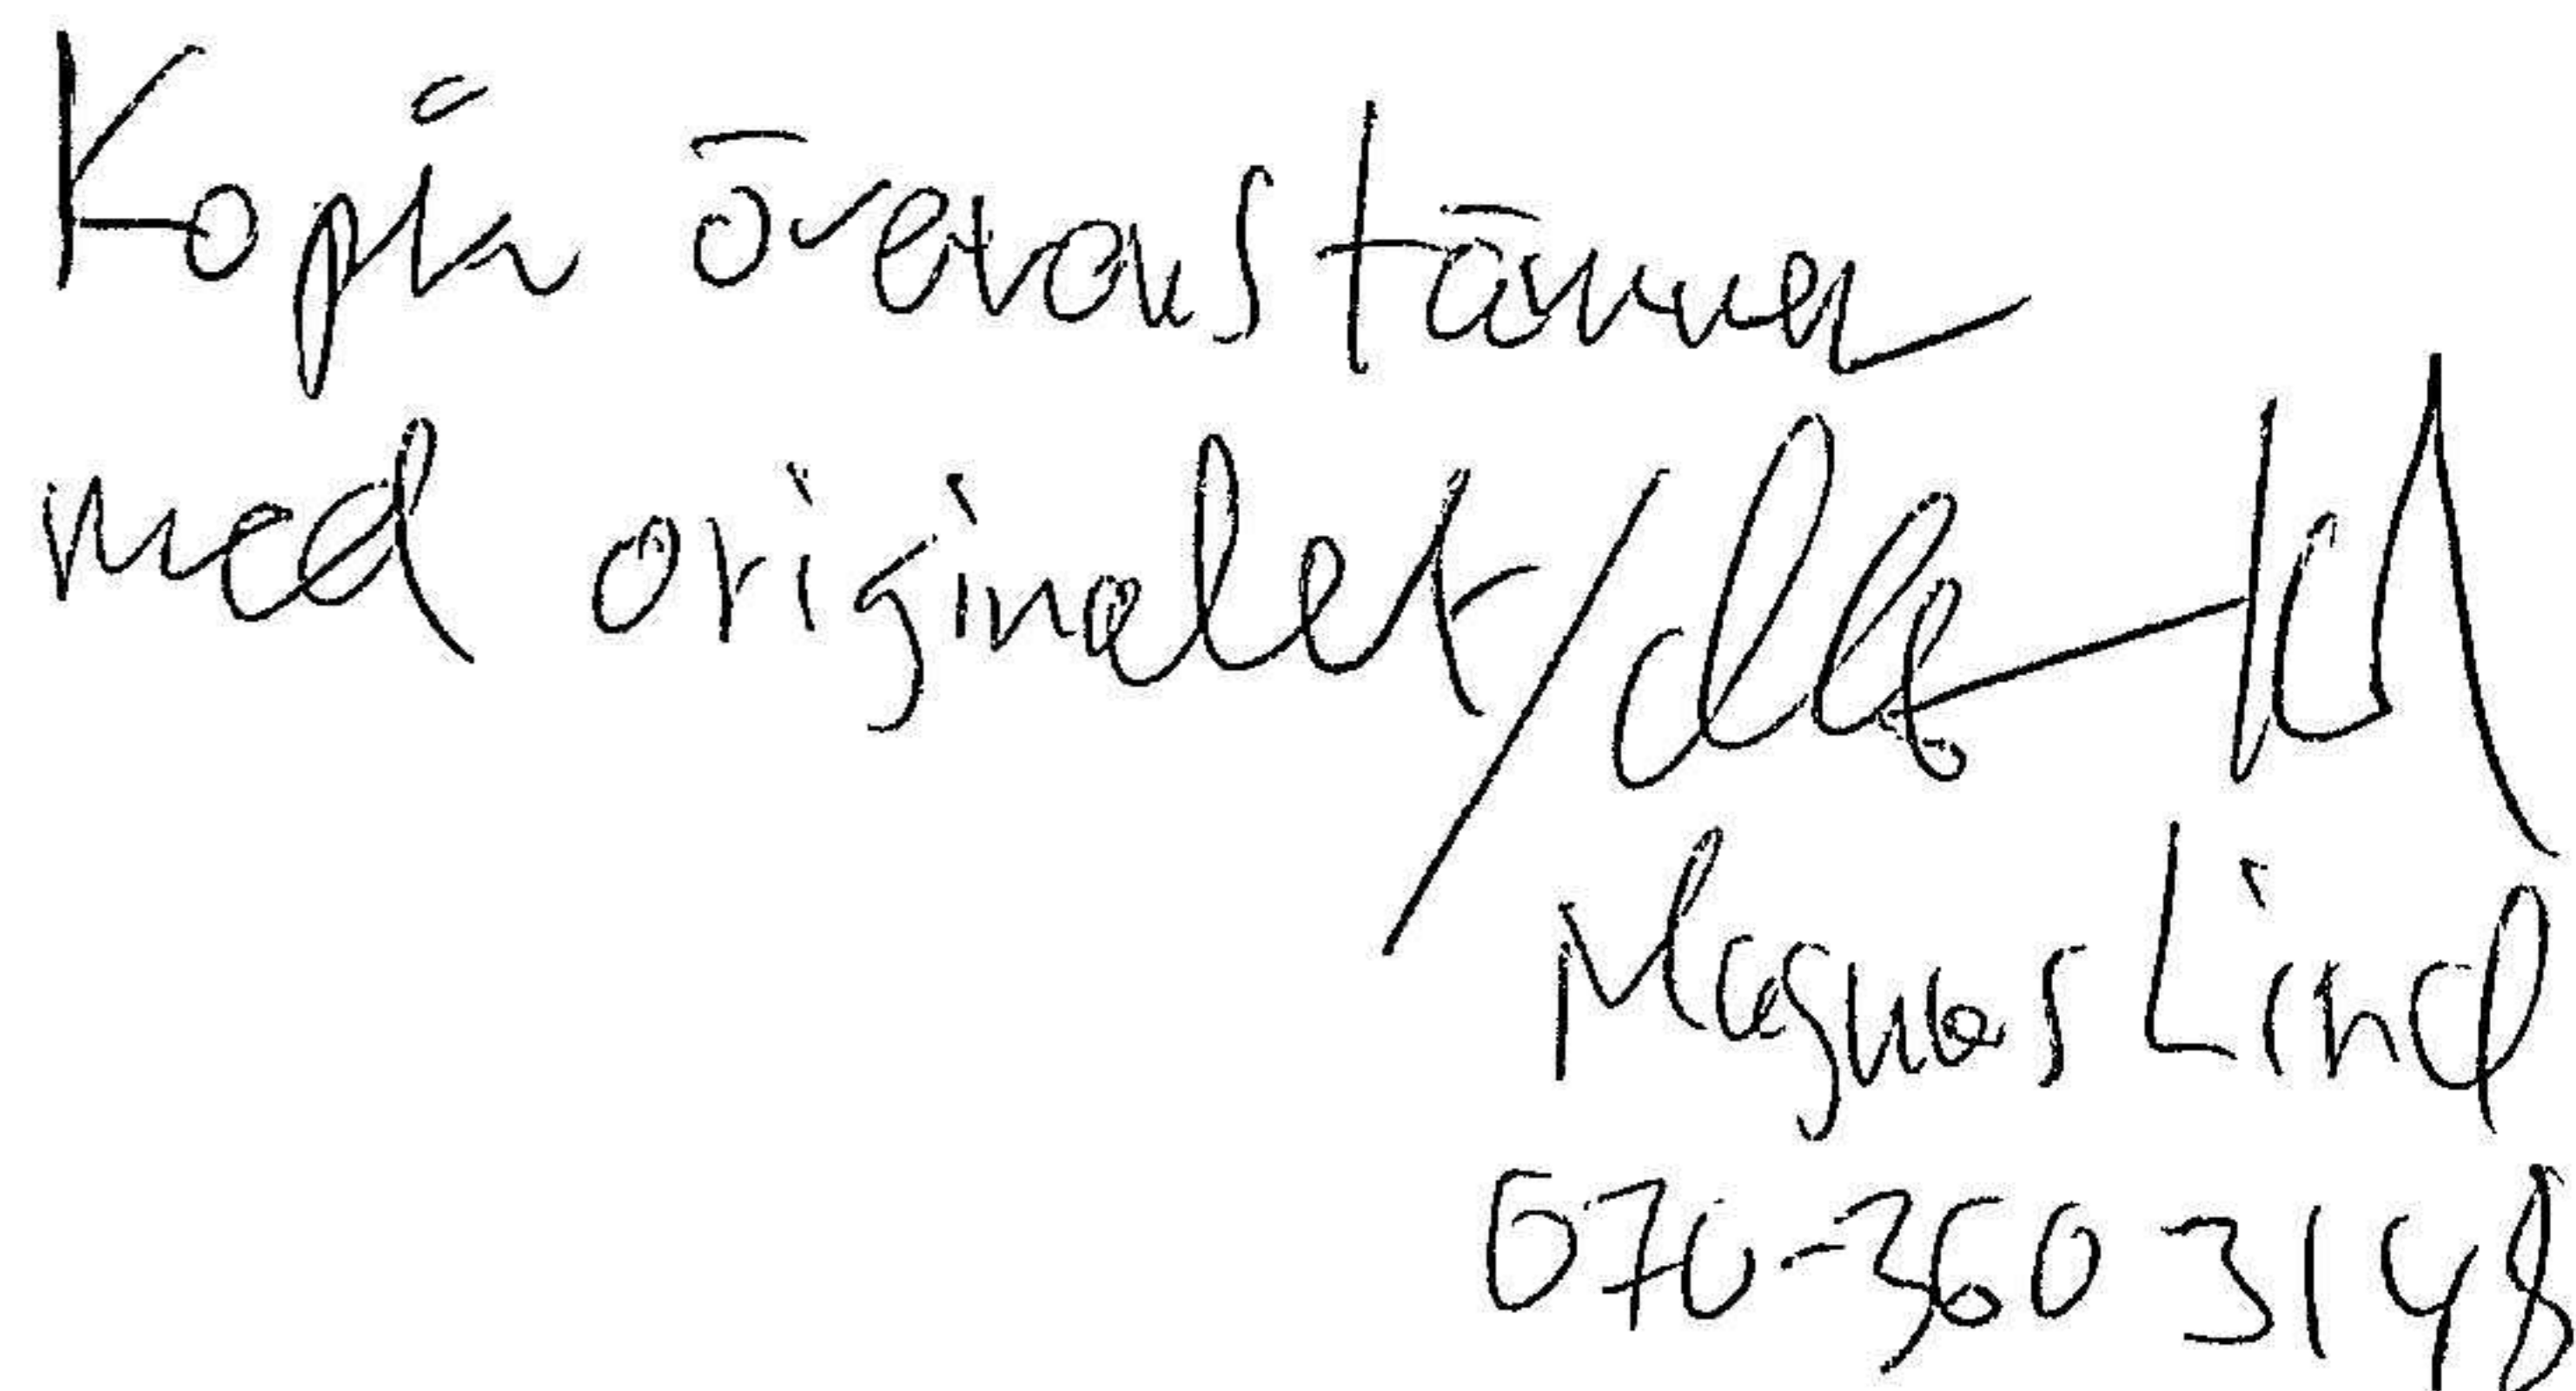 Kopia överensstämmer
med originalet/
Magnus Lind
070-360 3148